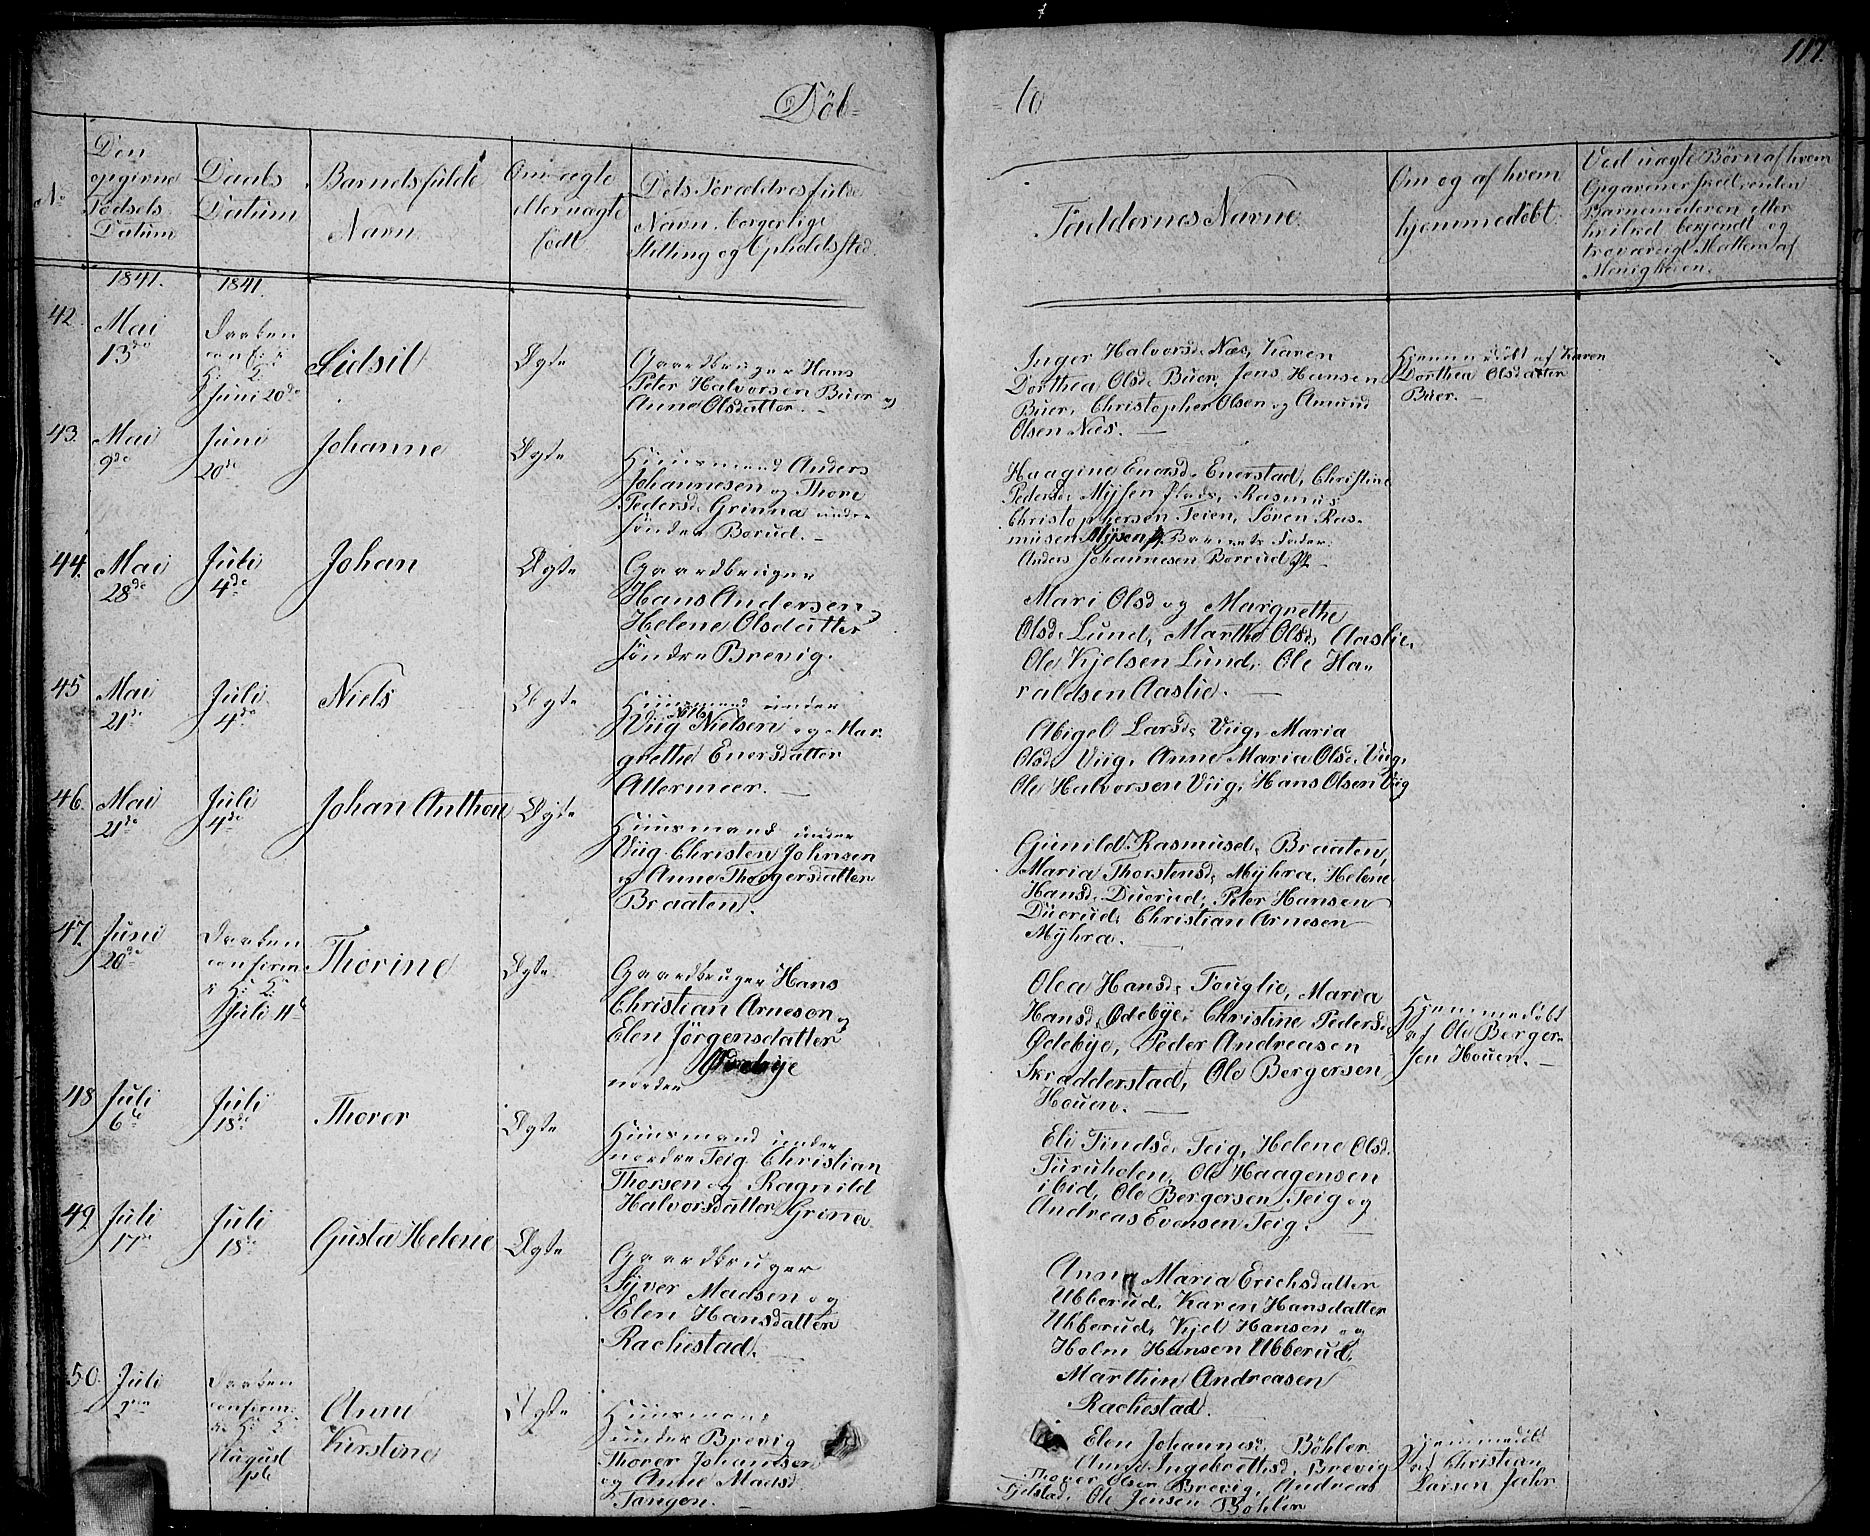 117.
Döb-
-te
No
Den
opgivne
Födsels-
Datum
Daabs
Datum
Barnets fulde
Navn.
Om ægte
eller uægte
födt
Dets Forældres fulde
Navn, borgerlige
Stilling og Opholdssted.
Faddernes Navne.
Om og af hvem
hjemmedöbt.
Ved uægte Börn af hvem
Opgaven er skeet, enten
Barnemoderen eller
hvilket bekjendt og
troværdigt Medlem af
Menigheden.
1841.
1841.
42.
Mai
13de
Daaben
conf: i
K: d:
Juni 20de
Sidsil
Ægte
Gaardbruger Hans
Peter Halvorsen Buer og
Anne Olsdatter. -
Inger Halvorsd: Næs, Karen
Dorthea Olsd: Buer, Jens Hansen
Buer, Christopher Olsen og Amund
Olsen Næs. -
Hjemmedöbt af Karen
Dorthea Olsdatter
Buer. -
43.
Mai
9de
Juni
20de
Johanne
Ægte
Huusmand Anders
Johannesen og Thore
Pedersd: Grinna under
söndre Borud. -
Haagine Enersd: Enerstad, Christine
Pedersd: Mÿsen Plads, Rasmus
Christophersen Teien, Sören Ras-
musen Mÿsen, Barnets Fader
Anders Johannesen Borrud
44.
Mai
28de
Juli
4de
Johan
Ægte
Gaardbruger
Hans Andersen,
Helene Olsdatter
söndre Brevig.
Mari Olsd og Margrethe
Olsd: Lund, Marthe Olsd: Aaslie,
Ole Kjelsen Lund, Ole Ha-
raldsen Aaslie. -
45
Mai
21de
Juli
4de
Niels
Ægte
Huusmand under
Viig Nils Nielsen og Mar-
grethe Enersdatter
Attermeer. -
Abigel Larsd: Viig, Maria
Olsd: Viig, Anne Maria Olsd: Viig,
Ole Halvorsen Viig, Hans Olsen Viig
46.
Mai
21de
Juli
4de
Johan Anthon
Ægte
Huusmand under
Viig Christen Johnsen
og Anne Thorgersdatter
Braaten.
Gunild Rasmusd: Braaten,
Maria Thorstensd: Mÿhra, Helene
Hansd: Duerud, Peter Hansen
Duerud, Christian Arnesen
Mÿhra. -
47.
Juni
20de
Daaben
confirm
i K: d:
Juli 11te
Thorine
Ægte
Gaardbruger Hans
Christian Arnesen og
Elen Jörgensdatter
nordre Ödebye
Olea Hansd: Fouglie, Maria
Hansd: Ödebÿe, Christine Pedersd:
Ödebÿe, Peder Andreasen
Skrædderstad, Ole Bergersen
Houen. -
Hjemmedöbt
af Ole Berger-
sen Houen. -
48
Juli
6te
Juli
18de
Thorer
Ægte
Huusmand under
nordre Teig Christian
Thorsen og Ragnild
Halvorsdatter Grina
Eli Findsd: Teig, Helene Olsd:
Furuholen, Ole Haagensen
ibid, Ole Bergersen Teig og
Andreas Evensen Teig.
49.
Juli
17de
Juli
18de
Gusta Helene
Ægte
Gaardbruger
Syver Madsen og
Elen Hansdatter
Rachestad. -
Anne Maria Erichsdatter
Ubberud, Karen Hansdatter
Ubberud, Kjel Hansen og
Holm Hansen Ubberud,
Marthin Andreasen
Rachestad.
50.
Juli
Daaben
confirm:
i K: d:
August
Anne
Kirstine
Ægte
Huusmand
under Brevig
Thorer Johansen
og Anne Madsd:
Tangen. -
Elen Johannesd: Böhler
Anne Ingebretsd: Brevig
Thorer Olsen Brevig, Andreas
Gjelstad, Ole Jensen Böhler
Hjemmedöbt
af Christian
Larsen